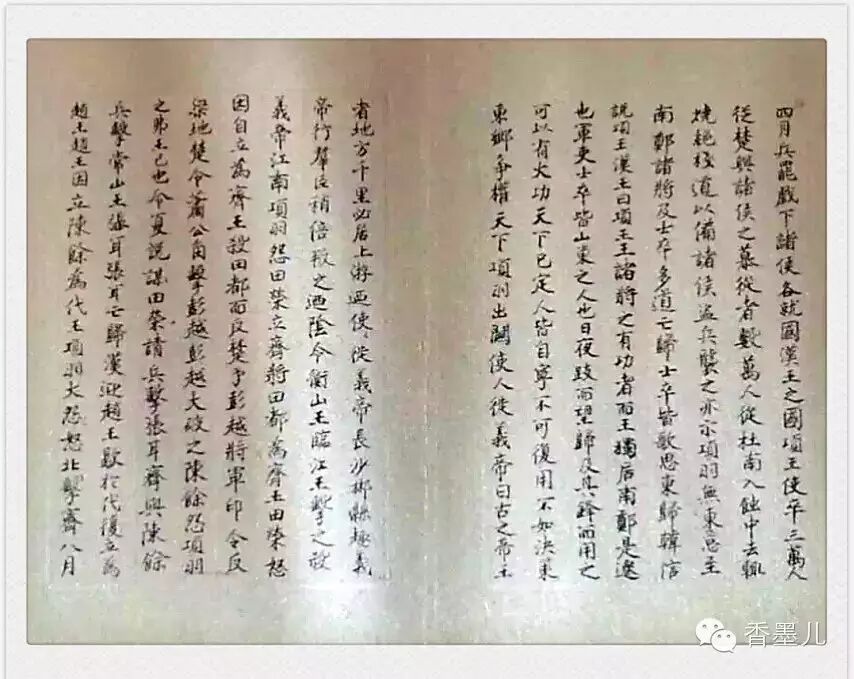 四月兵罷戲下諸侯各就國漢王之國項王使卒三萬人
從楚與諸侯之慕從者數萬人從杜南入蝕中去輒
燒絕棧道以備諸侯盜兵襲之亦示項羽無東意至
南鄭諸將及士卒多道亡歸士卒皆歌思東歸韓信
說項王漢王曰項王王諸將之有功者而王獨居南鄭是遷
也軍吏士卒皆山東之人也日夜跂而望歸及其鋒而用之
可以有大功天下已定人皆自寧不可復用不如決策
東鄉爭權天下項羽出關使人徙義帝曰古之帝王
者地方千里必居上游迺使使徙義帝長沙郴縣趣義
帝行羣臣稍倍叛之迺陰令衡山王臨江王擊之殺
義帝江南項羽怨田榮立齊將田都為齊王田榮怒
因自立為齊王殺田都而反楚予彭越將軍印令反
梁地楚令蕭公角擊彭越彭越大破之陳餘怨項羽
之弗王己也令夏說謀田榮請兵擊張耳齊與陳餘
兵擊常山王張耳張耳亡歸漢迎趙王歇於代復立為
趙王趙王因立陳餘為代王項羽大怨怒北擊齊八月
香墨儿